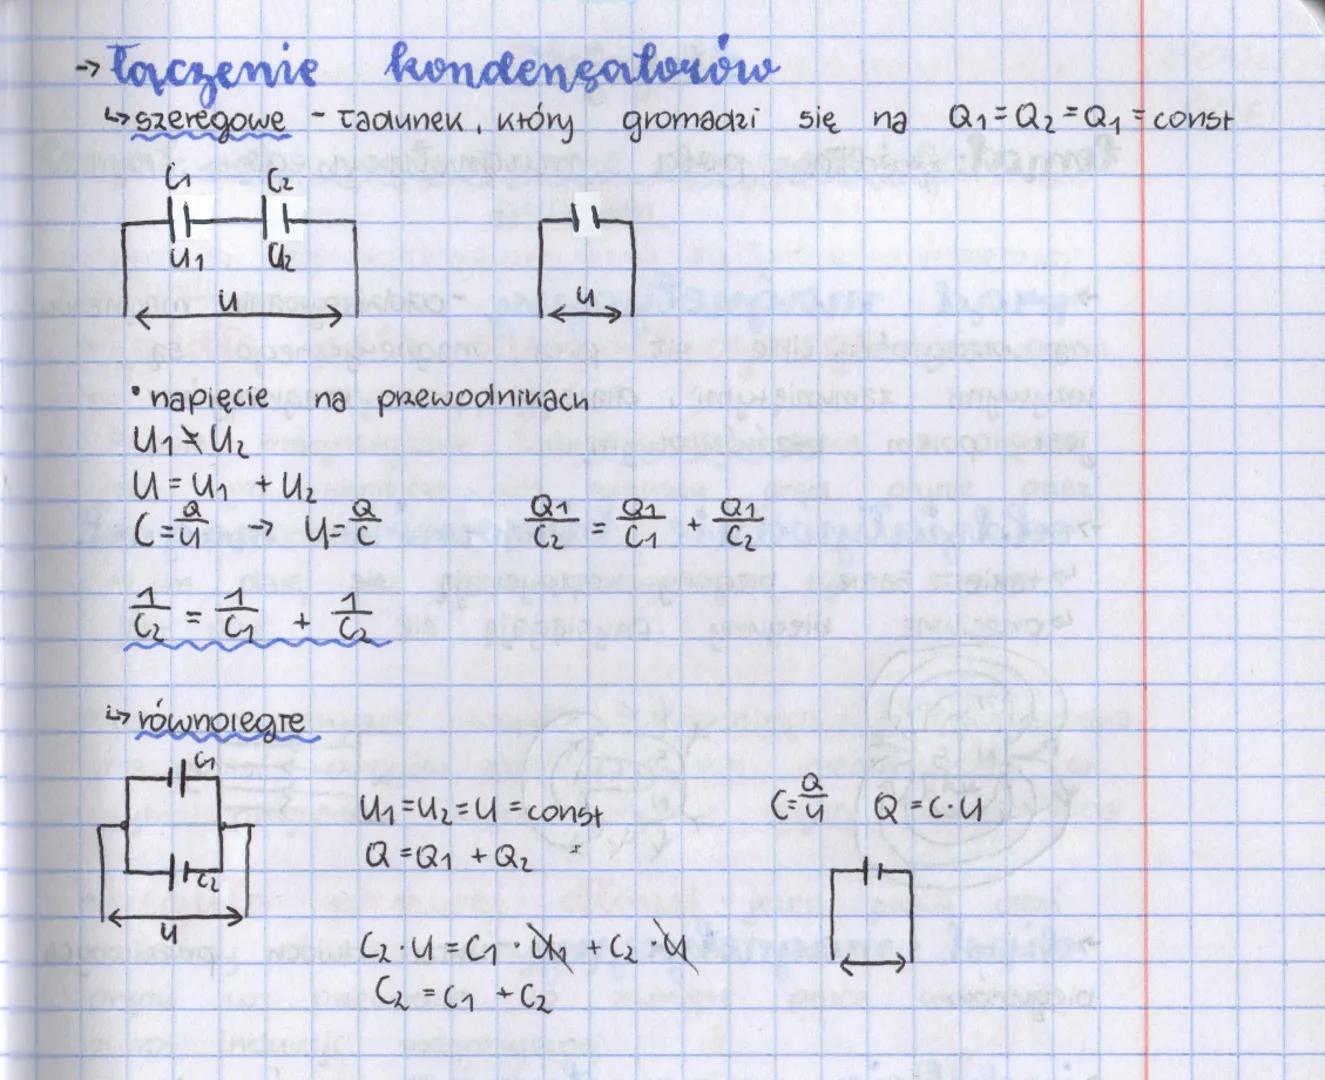 → Łączenie kondensatorów
↳ szeregowe - ładunek, który gromadzi się na Q₁ = Q₂ = Q₁ = const
C₁ C₂
U₁ U₂
U
U
• napięcie na przewodnikach
U₁ ≠ U₂
U = U₁ + U₂
C = Q/U → U = Q/C
Q₁/C₂ = Q₁/C₁ + Q₁/C₂
1/C₂ = 1/C₁ + 1/C₂
↳ równoległe
C₁
C₂
U
U₁ = U₂ = U = const
Q = Q₁ + Q₂
C = Q/U Q = C · U
C₂ · U = C₁ · U₁ + C₂ · U
C₂ = C₁ + C₂